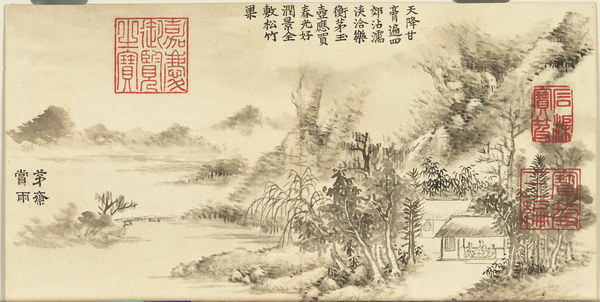 天降甘
膏遍四
郊沾濡
浹洽樂
衡茅玉
壺應買
春光好
潤景全
敷松竹
巢
石渠
寶笈
寶笈
三編
嘉慶
御覽
之寶
茅齋
賞雨